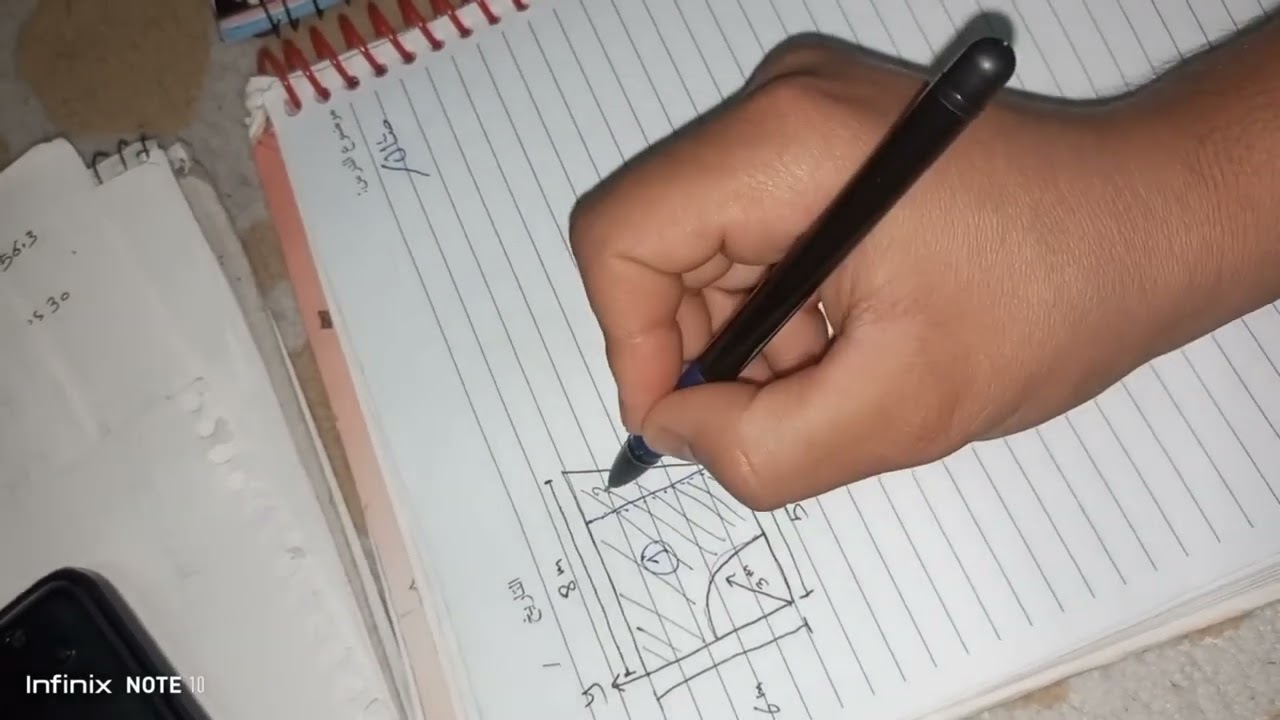 موضوع الدرس:
مثال/
التاريخ
/
8 m
y
1
3 m
5
6 m
56.3
.s 30
Infinix NOTE 10